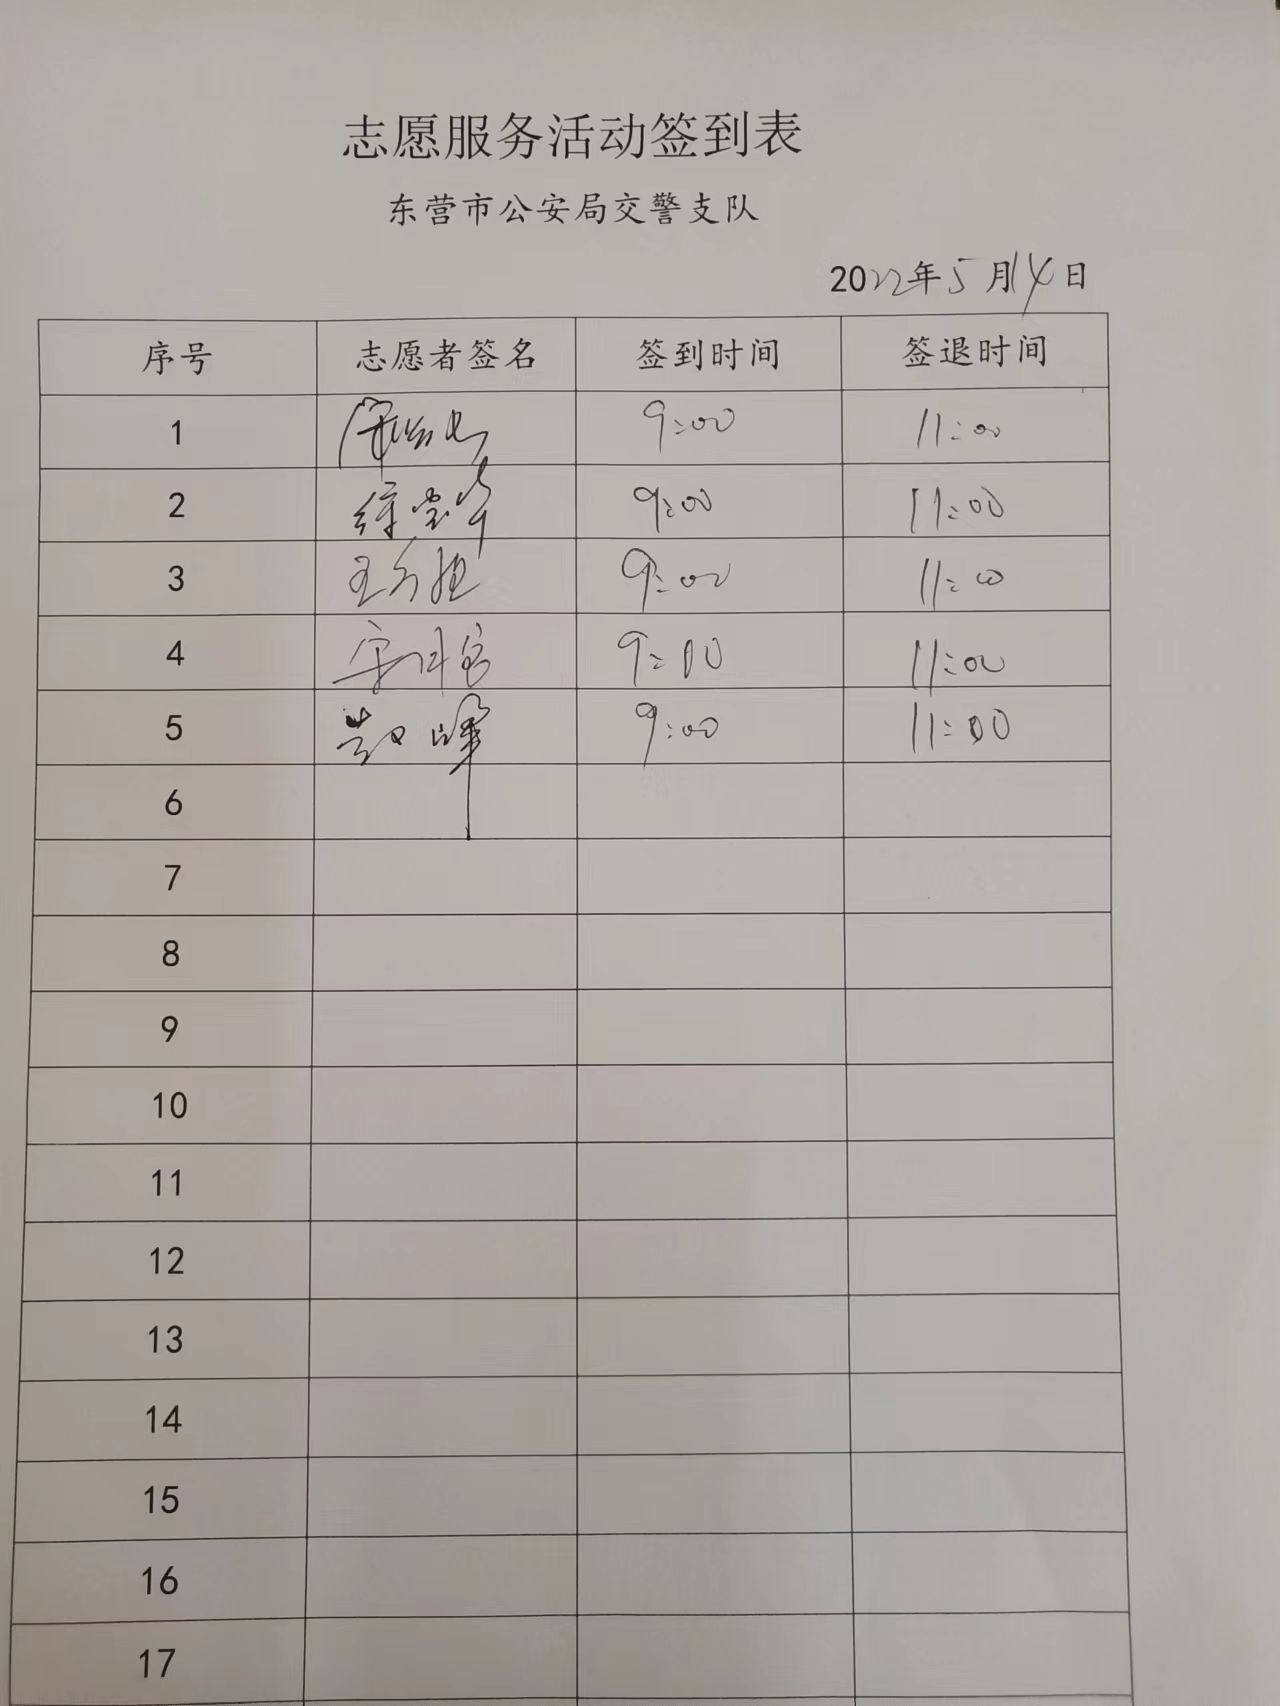 志愿服务活动签到表
东营市公安局交警支队
2022年5月14日
序号 志愿者签名 签到时间 签退时间
1 9:00 11:00
2 9:00 11:00
3 王 9:00 11:00
4 9:10 11:00
5 峰 9:00 11:00
6
7
8
9
10
11
12
13
14
15
16
17